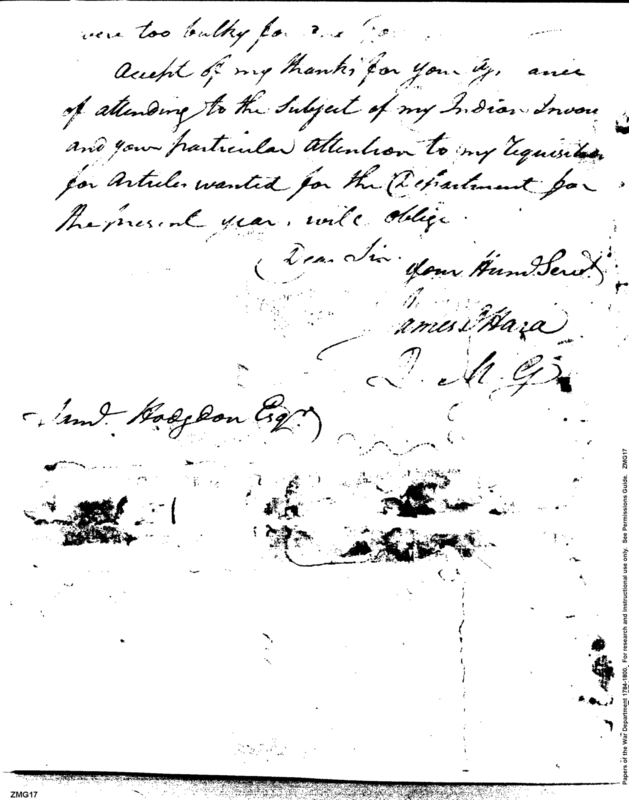 were too bulky for
Accept of my thanks for your
of attending to the Subject of my Indian Invoice
and your particular attention to my requisition
for Articles wanted for the Department for
the present year, will oblige.
Dear Sir.
your Hum. Servt.
James OHara
Q. M. G
Saml. Hodgdon Esqr.
Papers of the War Department 1784-1800. For research and instructional use only. See Permissions Guide. ZMG17
ZMG17